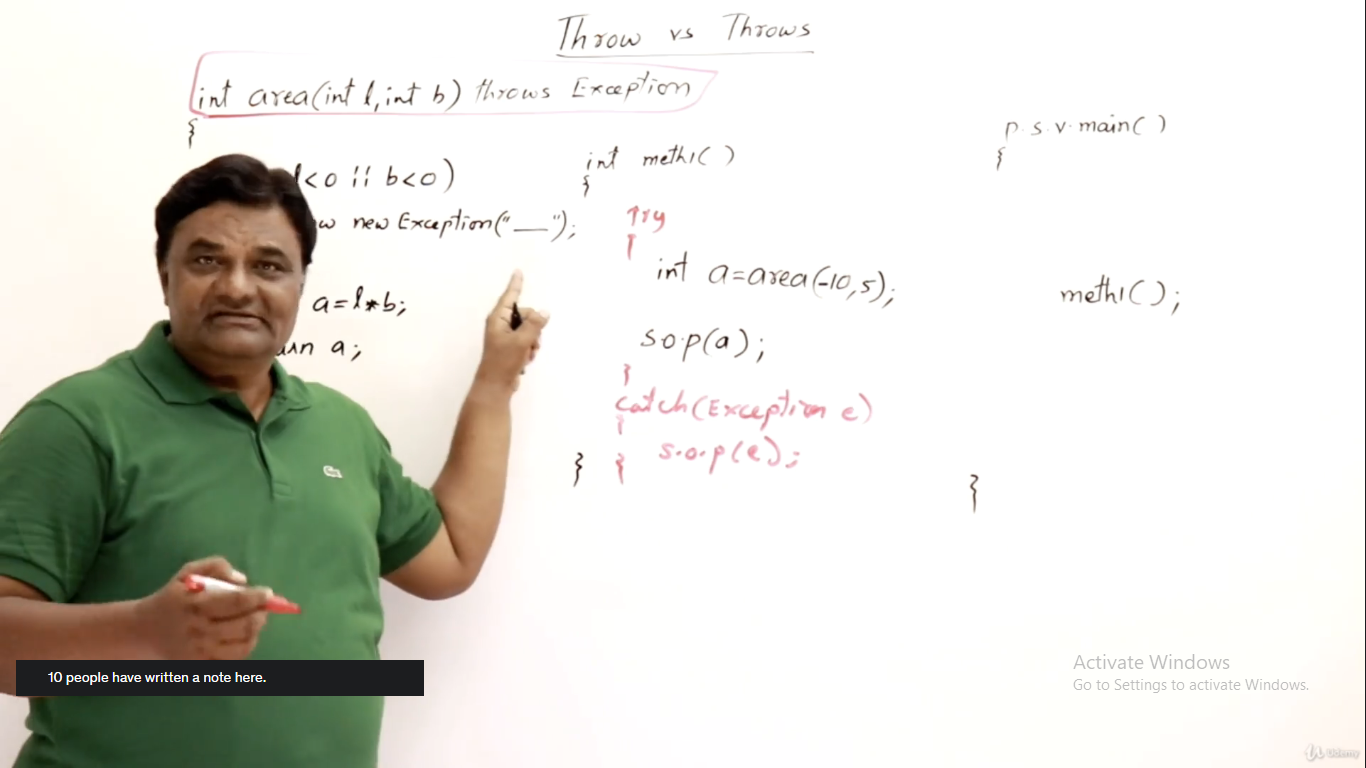 Throw vs Throws
int area(int l, int b) throws Exception
{
l<0 || b<0)
w new Exception("—");
a=l*b;
a;
}
int meth1( )
{
Try
{
int a=area(-10,5);
s.o.p(a);
}
catch(Exception e)
{
s.o.p(e);
}
p.s.v.main( )
{
meth1( );
}
10 people have written a note here.
Activate Windows
Go to Settings to activate Windows.
Udemy